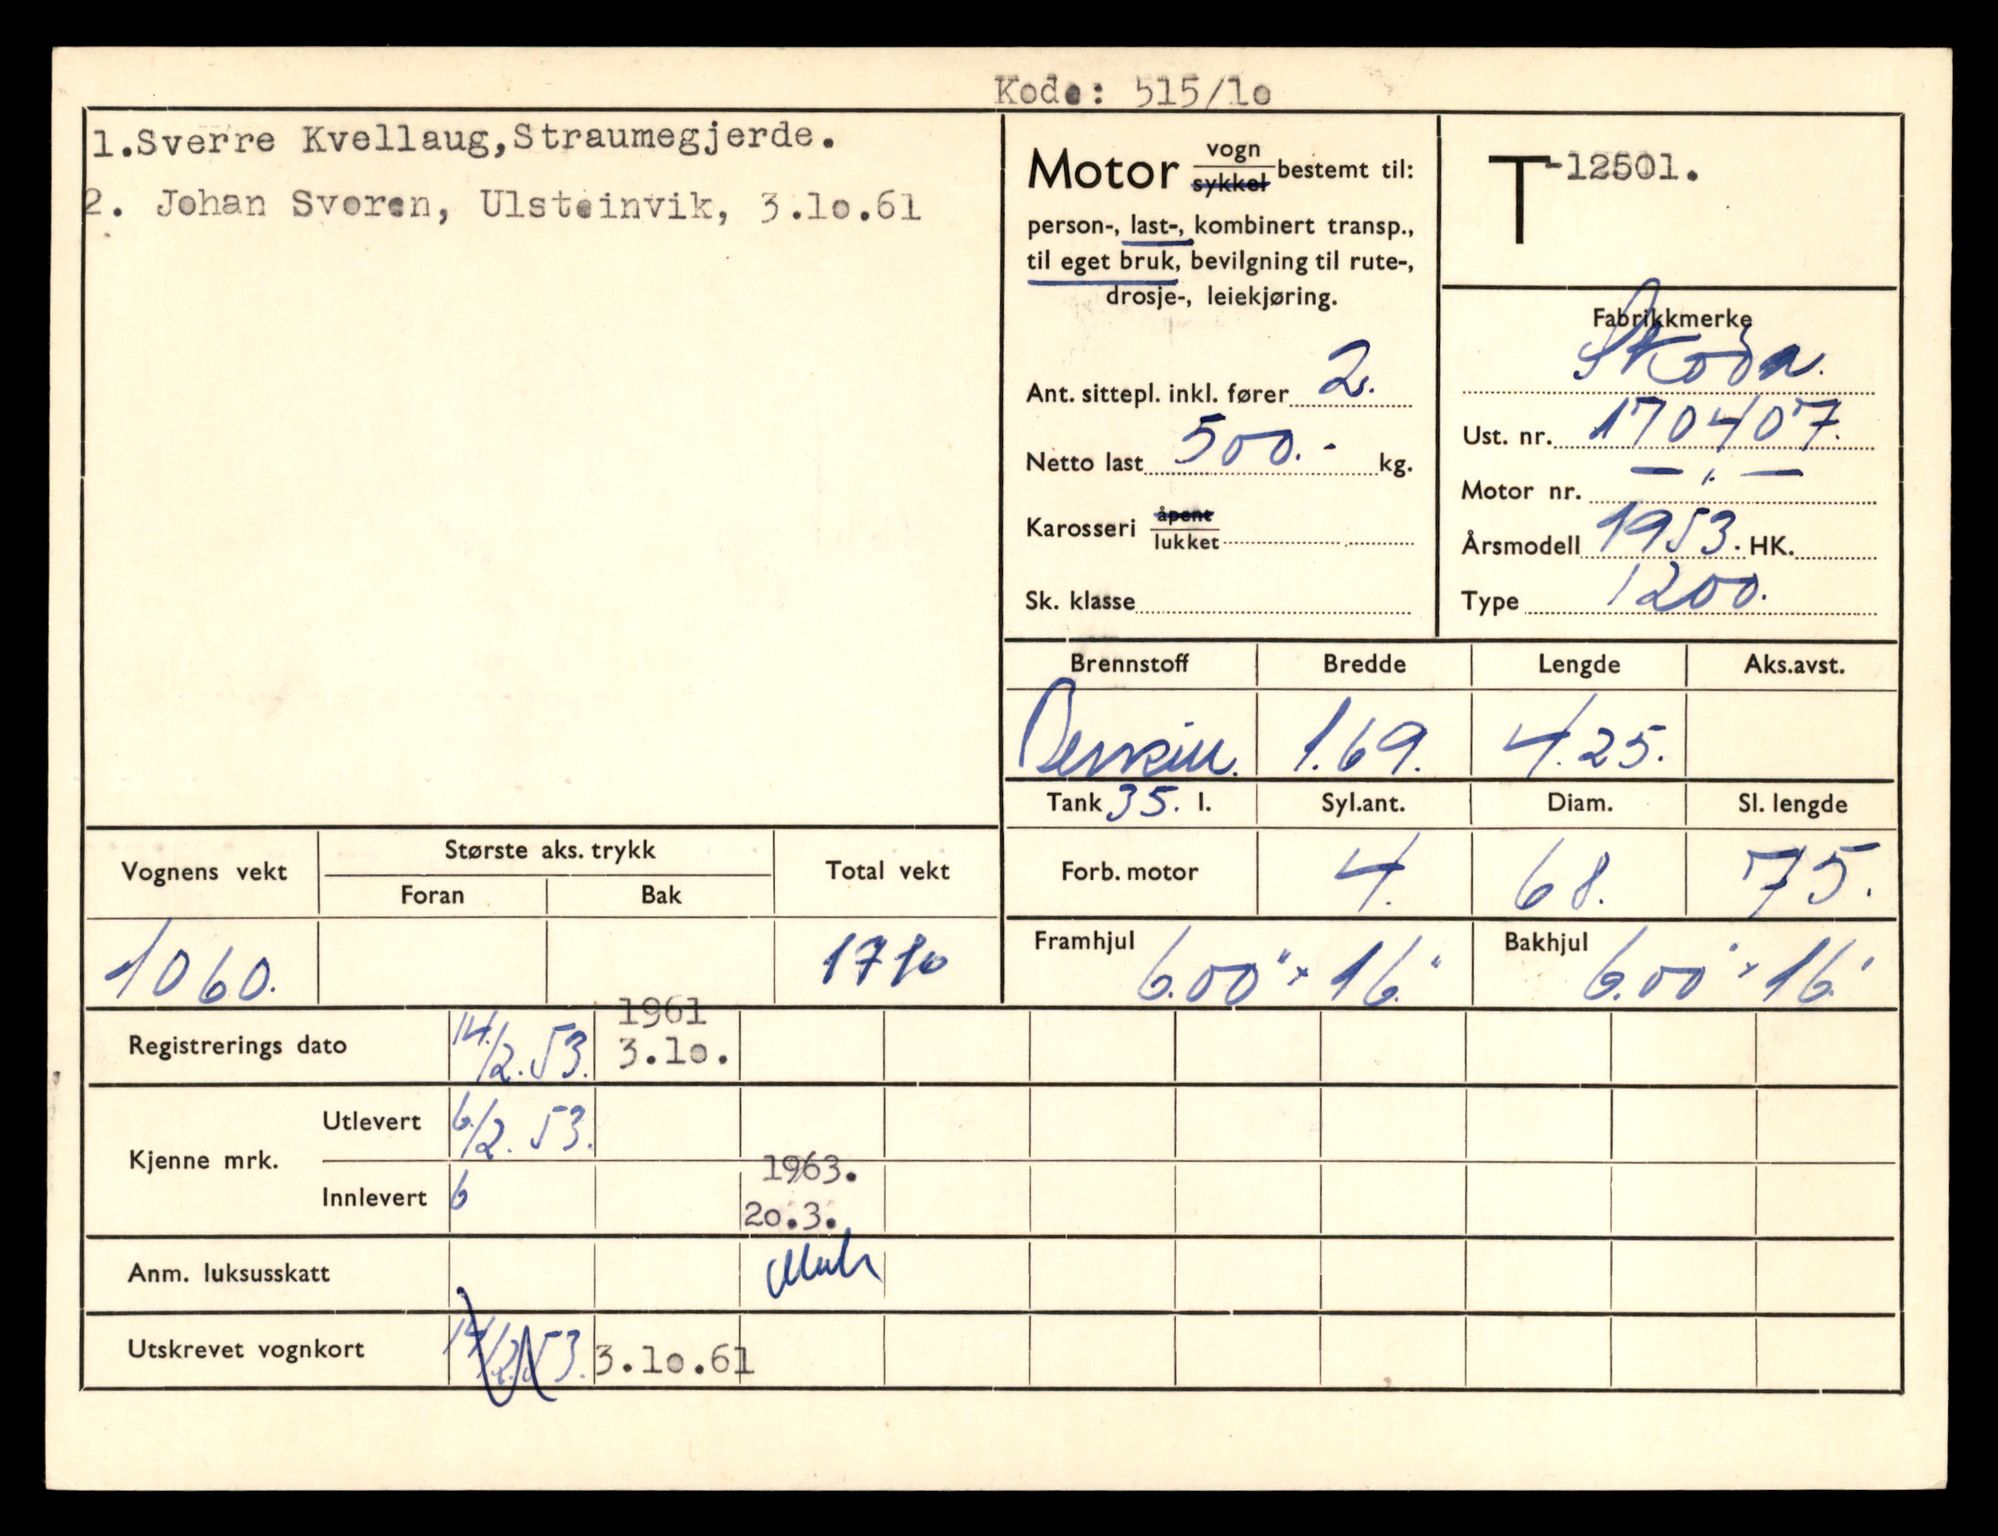 Kode: 515/1o
1.Sverre Kvellaug,Straumegjerde.
2. Johan Svoren, Ulsteinvik, 3.1o.61
Motor vogn sykkel bestemt til:
person-, last-, kombinert transp.,
til eget bruk, bevilgning til rute-,
drosje-, leiekjøring.
Ant. sittepl. inkl. fører 2.
Netto last 500.- kg.
Karosseri åpent lukket
Sk. klasse
T-12501.
Fabrikkmerke
Skoda.
Ust. nr. 170407.
Motor nr. — " —
Årsmodell 1953. HK.
Type 1200.
Brennstoff Bredde Lengde Aks.avst.
Bensin. 1.69. 4.25.
Tank 35. l. Syl.ant. Diam. Sl. lengde
Forb. motor 4. 68. 75.
Framhjul 6.00" x 16" Bakhjul 6.00" x 16"
Vognens vekt Største aks. trykk Total vekt
Foran Bak
1060. 1710
Registrerings dato 14./2. 53. 1961 3.1o.
Kjenne mrk. Utlevert 6./2. 53.
Innlevert 6 1963. 2o.3.
Anm. luksusskatt
Utskrevet vognkort 14/2.53. 3.1o.61